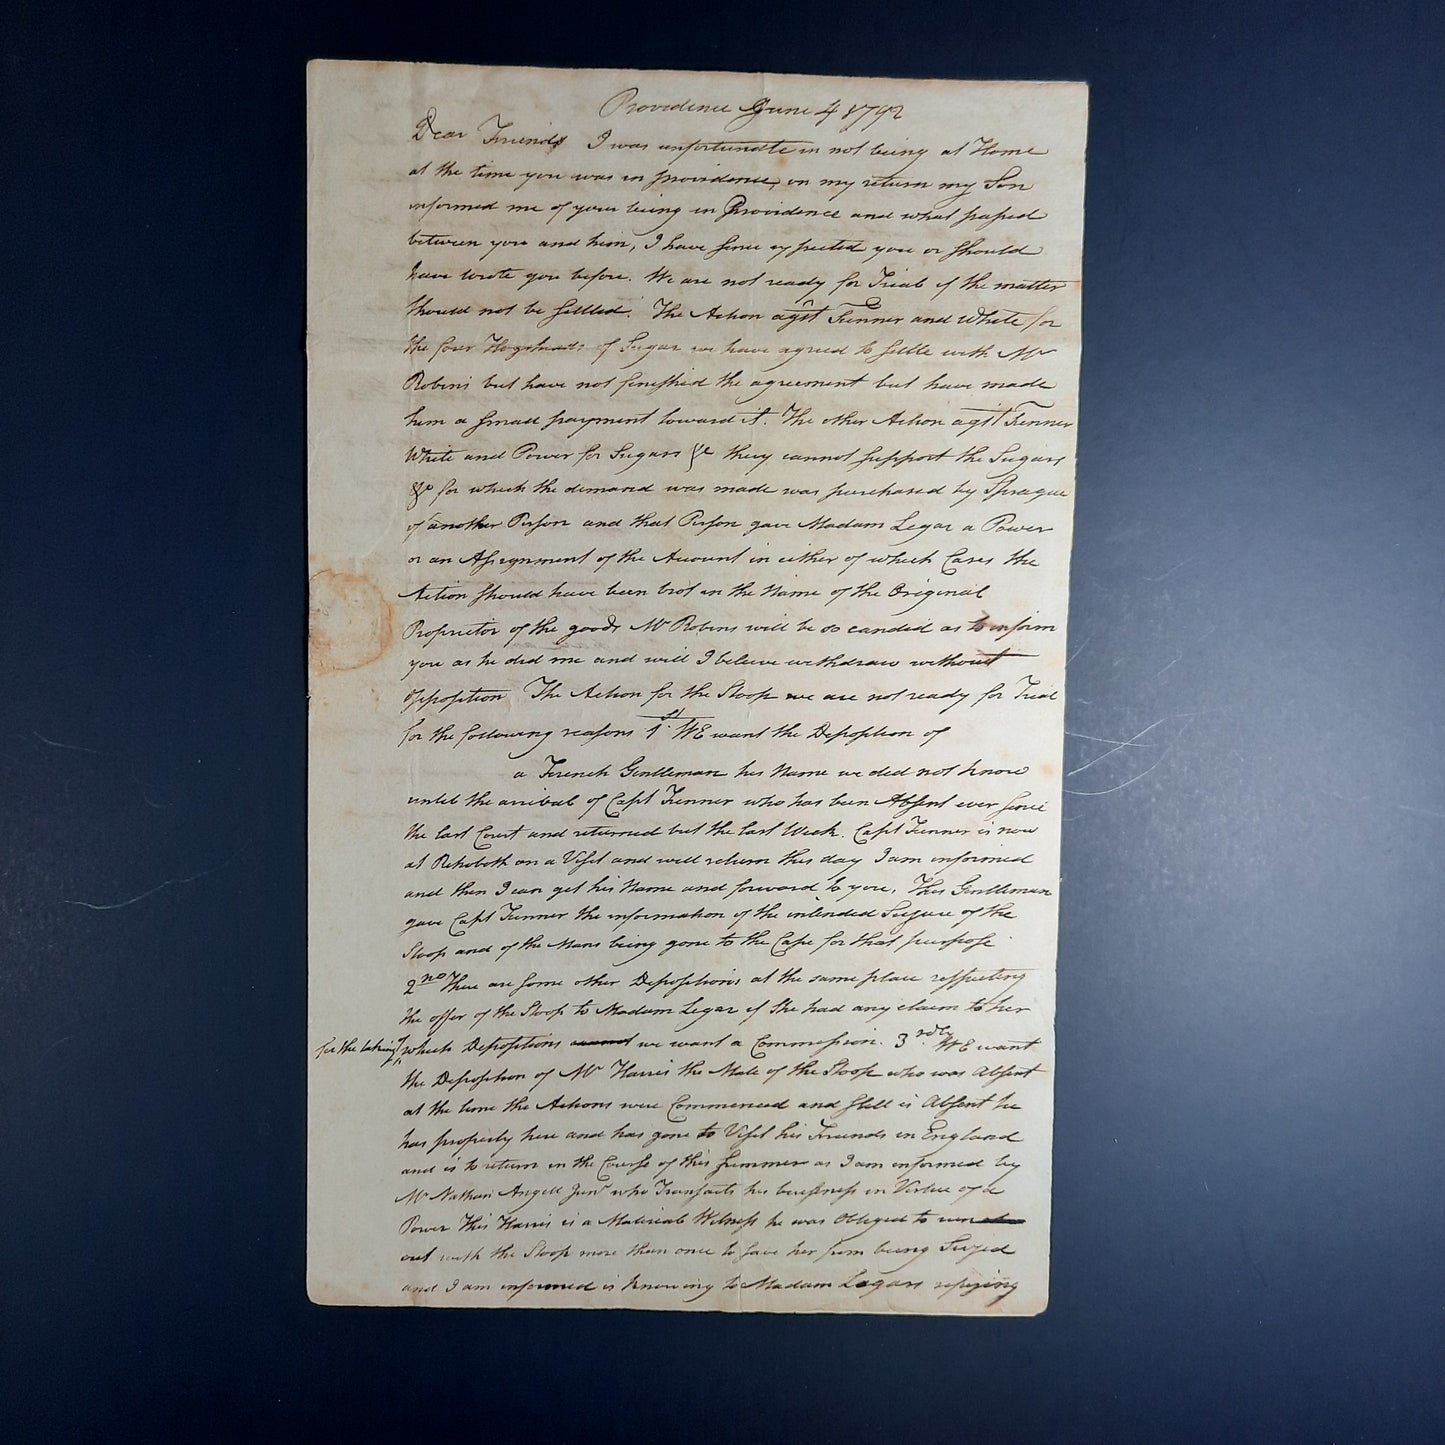 Providence June 4 1792
Dear Friends I was unfortunate in not being at Home
at the time you was in providence, on my return my Son
informed me of your being in Providence and what passed
between you and him, I have since expected you or should
have wrote you before. We are not ready for Trial if the matter
should not be settled. The Action agst Tunner and White for
the four Hogsheads of Sugar we have agreed to settle with Mr
Robins but have not finished the agreement but have made
him a small payment toward it. The other Action agst Tunner
White and Power for Sugars &c they cannot support the Sugars
&c for which the demand was made was purchased by Sprague
of another Person and that Person gave Madam Legar a Power
or an Assignment of the Account in either of which Cases the
Action should have been brot in the Name of the Original
Proprietor of the goods Mr Robins will be so candid as to inform
you as he did me and will I believe withdraw without
opposition The Action for the Sloop we are not ready for Trial
for the following reasons 1st WE want the Deposition of
a French Gentleman his Name we did not know
until the arrival of Capt Tunner who has been Absent ever since
the last Court and returned but the last Week. Capt Tunner is now
at Rehoboth on a Visit and will return this day I am informed
and then I can get his Name and forward to you, This Gentleman
gave Capt Tunner the information of the intended Seizure of the
Sloop and of the Mans being gone to the Cape for that purpose
2nd There are some other Depositions at the same place respecting
the offer of the Sloop to Madam Legar if she had any claim to her
for the taking which Depositions we want a Commission. 3rdly WE want
the Deposition of Mr Harris the Mate of the Sloop who was Absent
at the time the Actions were Commenced and still is Absent he
has property here and has gone to Visit his Friends in England
and is to return in the Course of this Summer as I am informed by
Mr Nathan Angell Junr who Transacts his business in Virtue of a
Power This Harris is a Material Witness he was Obliged to
out with the Sloop more than once to save her from being Seized
and I am informed is knowing to Madam Legars refusing